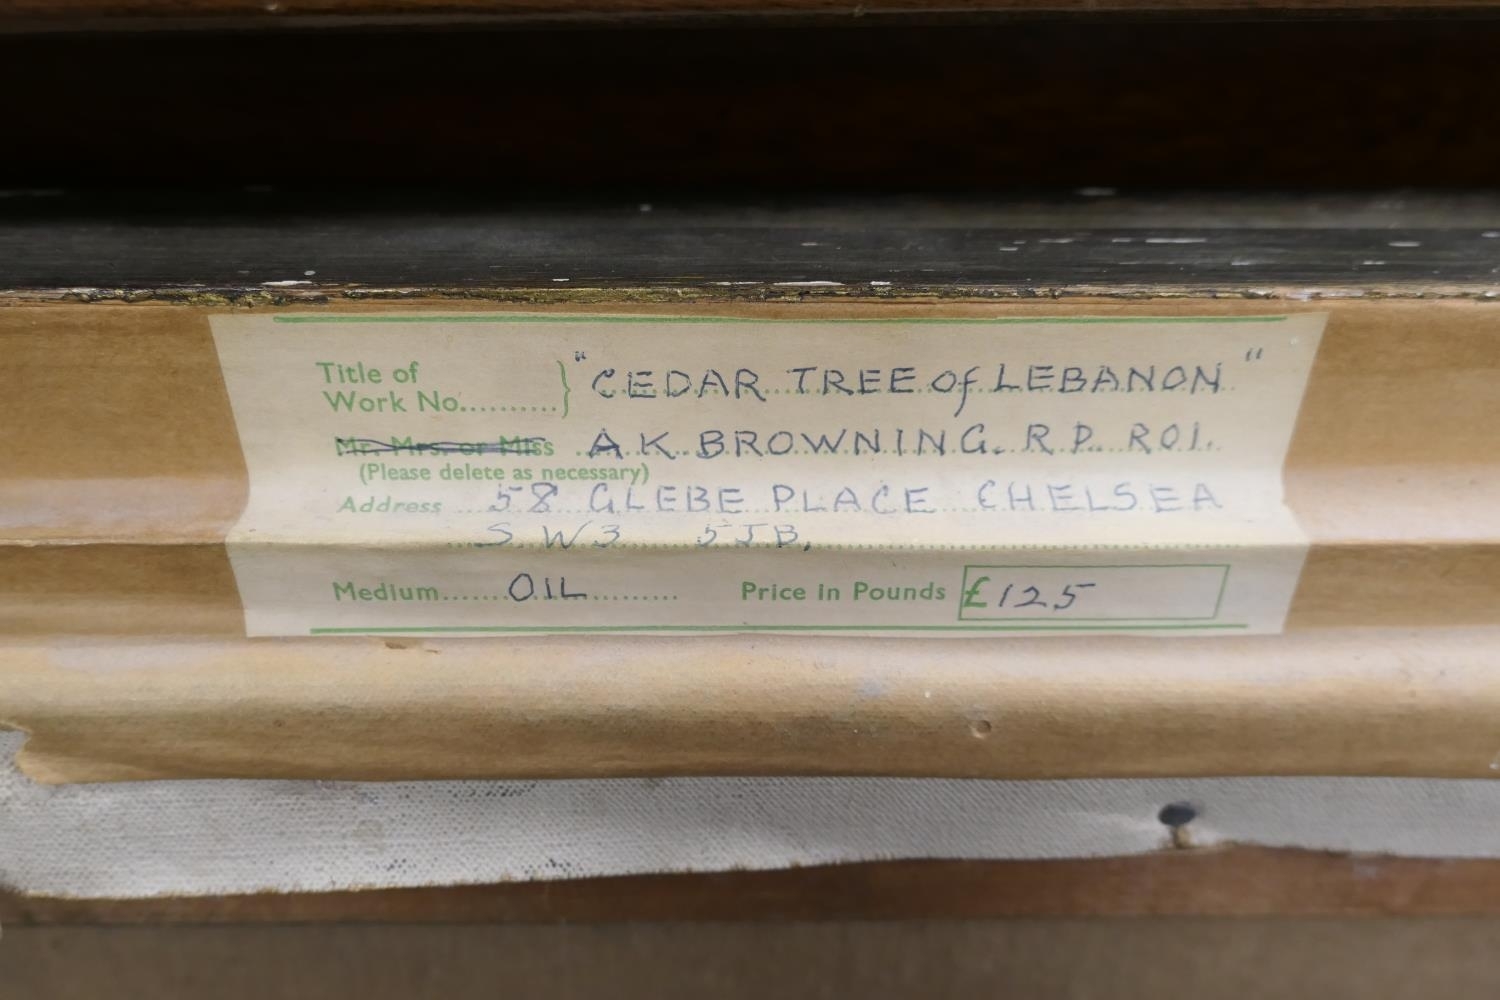 Title of
Work No.......... } "CEDAR TREE of LEBANON"
Mr. Mrs. or Miss A K. BROWNING. R P. ROI.
(Please delete as necessary)
Address 58 GLEBE PLACE CHELSEA
S W 3 5JB,
Medium...... OIL .......... Price in Pounds £125